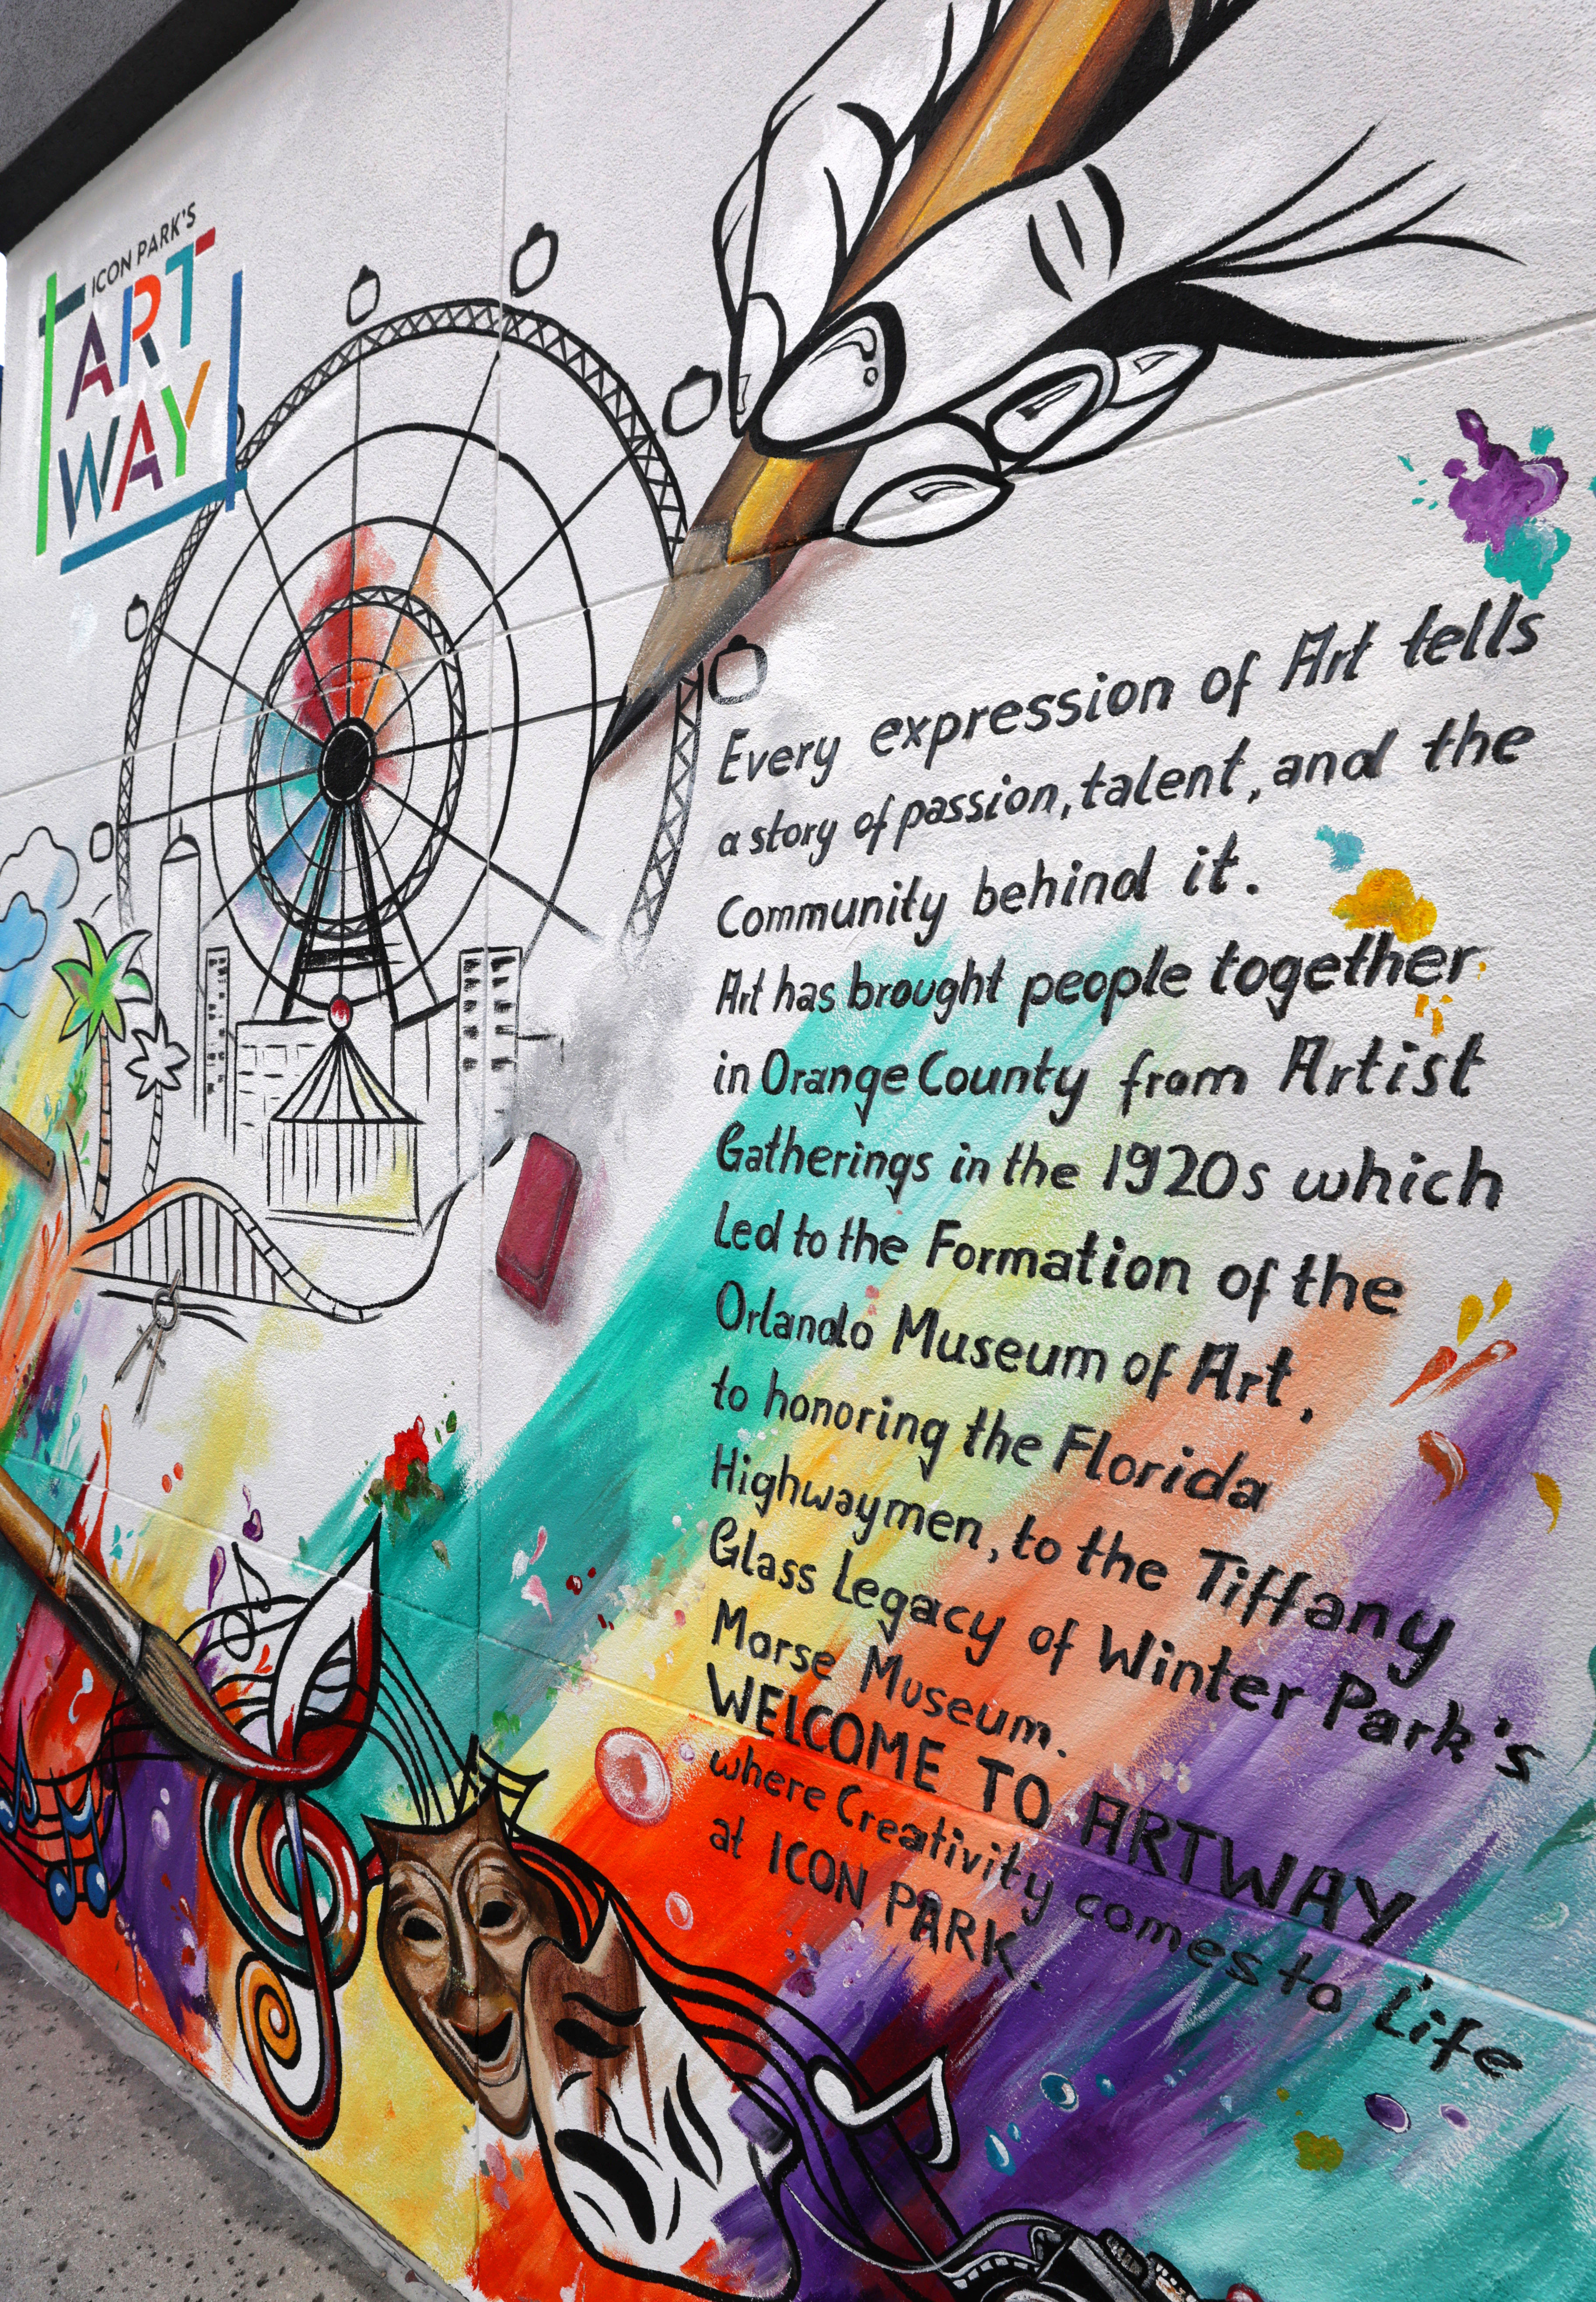 ICON PARK'S
ART
WAY
Every expression of Art tells
a story of passion, talent, and the
Community behind it.
Art has brought people together
in Orange County from Artist
Gatherings in the 1920s which
Led to the Formation of the
Orlando Museum of Art,
to honoring the Florida
Highwaymen, to the Tiffany
Glass Legacy of Winter Park's
Morse Museum.
WELCOME TO ARTWAY
where Creativity comes to Life
at ICON PARK.